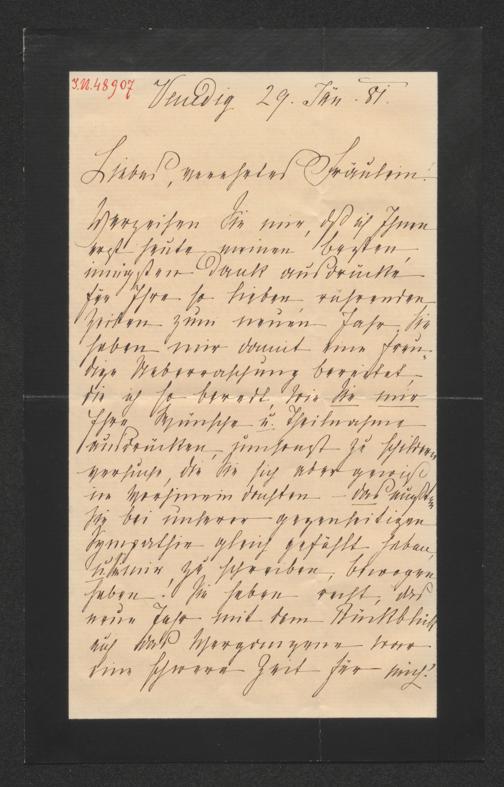 J.N. 48907
Venedig 29. Jän. 81.
Liebes, verehrtes Fräulein!
Verzeihen Sie mir, dß ich Ihnen
erst heute meinen besten,
innigsten Dank ausdrücke
für Ihre so lieben rührenden
Zeilen zum neuen Jahr. Sie
haben mir damit eine freu-
dige Ueberraschung bereitet,
die ich so beredt, wie Sie mir
Ihre Wünsche u. Theilnahme
ausdrückten, umsonst zu schildern
versuche, die Sie sich aber gewiß
im Vorhinein dachten – das müssen
Sie bei unserer gegenseitigen
Sympathie gleich gefühlt haben,
mir, zu schreiben, bewogen
haben. Sie haben recht, das
neue Jahr mit dem Rückblick
auf das Vergangene war
eine schwere Zeit für mich!